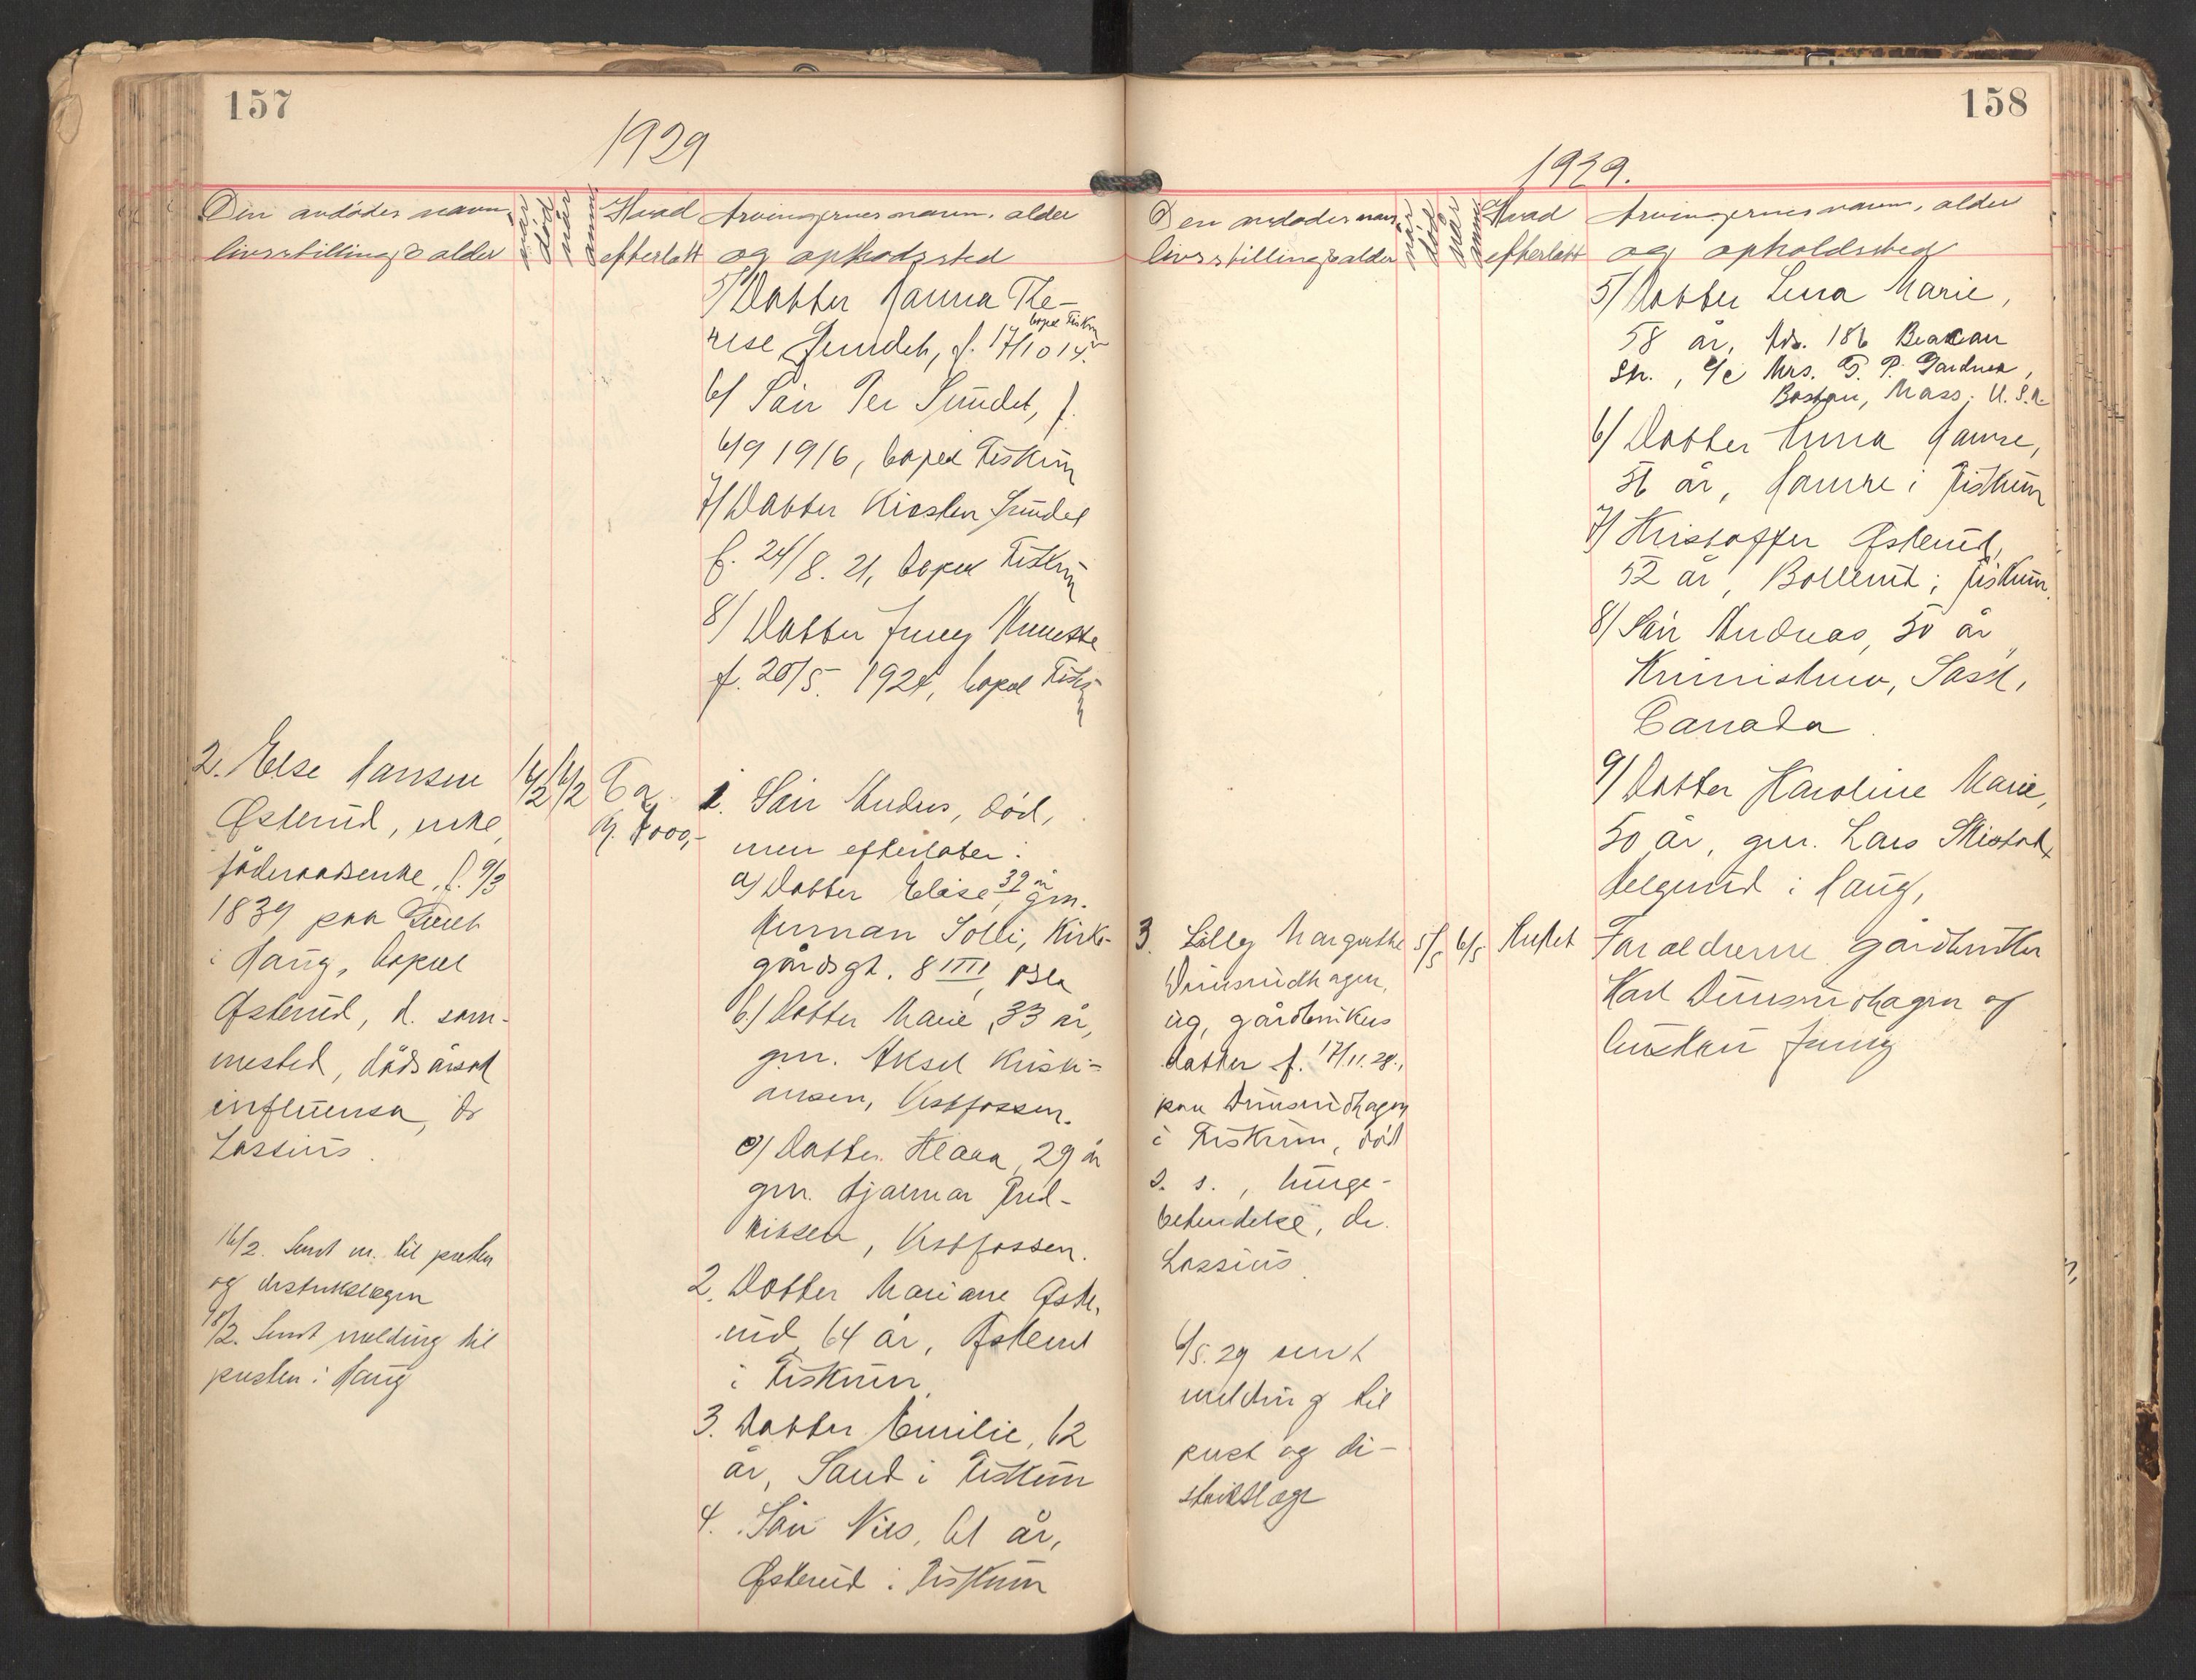 157
1929
Den avdødes navn,
livsstilling & alder
når
død
når
anm.
Hvad
efterlatt
Arvingernes navn, alder
og opholdssted
5/ Datter Hanna The-
rese Sundet, f. 17/10 14.
bopel Fiskum
6/ Sön Per Sundet, f.
6/9 1916, bopel Fiskum
7/ Datter Kirsten Sundet
f. 24/8. 21, bopel Fiskum
8/ Datter Jenny Annette
f. 20/5. 1924, bopel Fiskum
2. Else Hansen
Østerud, enke,
föderaadsenke, f. 9/3
1839 paa
i Haug, bopel
Østerud, d. sam-
mested, dödsårsak
influensa, dr
Lassius.
16/2
16/2
Ca.
kr. 4000,-
16/2. Sendt m. til presten
og distriktslægen
18/2. Sendt melding til
presten i Haug
1. Sön Anders, död,
men efterlater:
a) Datter Elise, 39 år gm.
Herman Solli, Kirke-
gårdsgt. 8 IIII, Oslo
b.) Datter Marie, 33 år,
gm. Aksel Kristi-
ansen, Vestfossen.
c) Datter Klara, 29 år
gm. Hjalmar Fred-
riksen, Vestfossen.
2. Datter Mariane Øste-
rud, 64 år, Østerud
i Fiskum.
3. Datter Emilie, 62
år, Sand i Fiskum
4. Sön Nils, 61 år,
Østerud i Fiskum
158
1929.
Den avdødes navn,
livsstilling & alder
når
død
når
anm.
Hvad
efterlatt
Arvingernes navn, alder
og opholdssted
5/ Datter Lena Marie,
58 år, Adr. 186 Beacon
Str., c/o Mrs. G. P. Gardner,
Boston, Mass. U.S.A.
6/ Datter Anna Hamre,
56 år, Hamre i Fiskum
7/ Kristoffer Østerud,
52 år, Bollerud i Fiskum.
8/ Sön Andreas, 50 år
Sask,
Canada.
9/ Datter Karoline Marie,
50 år, gm. Lars
Helgerud i Haug,
3. Lilly Margrethe
Dunserudhagen,
ug, gårdbrukers
datter f. 17/11. 28.,
paa Dunserudhagen
i Fiskum, död
s. s., lunge-
betendelse, dr.
Lassius.
5/5
6/5
Intet
Foraldrerne gårdbruker
Karl Dunserudhagen og
hustru Jenny
6/5. 29 sent
melding til
prest og di-
striktslæge